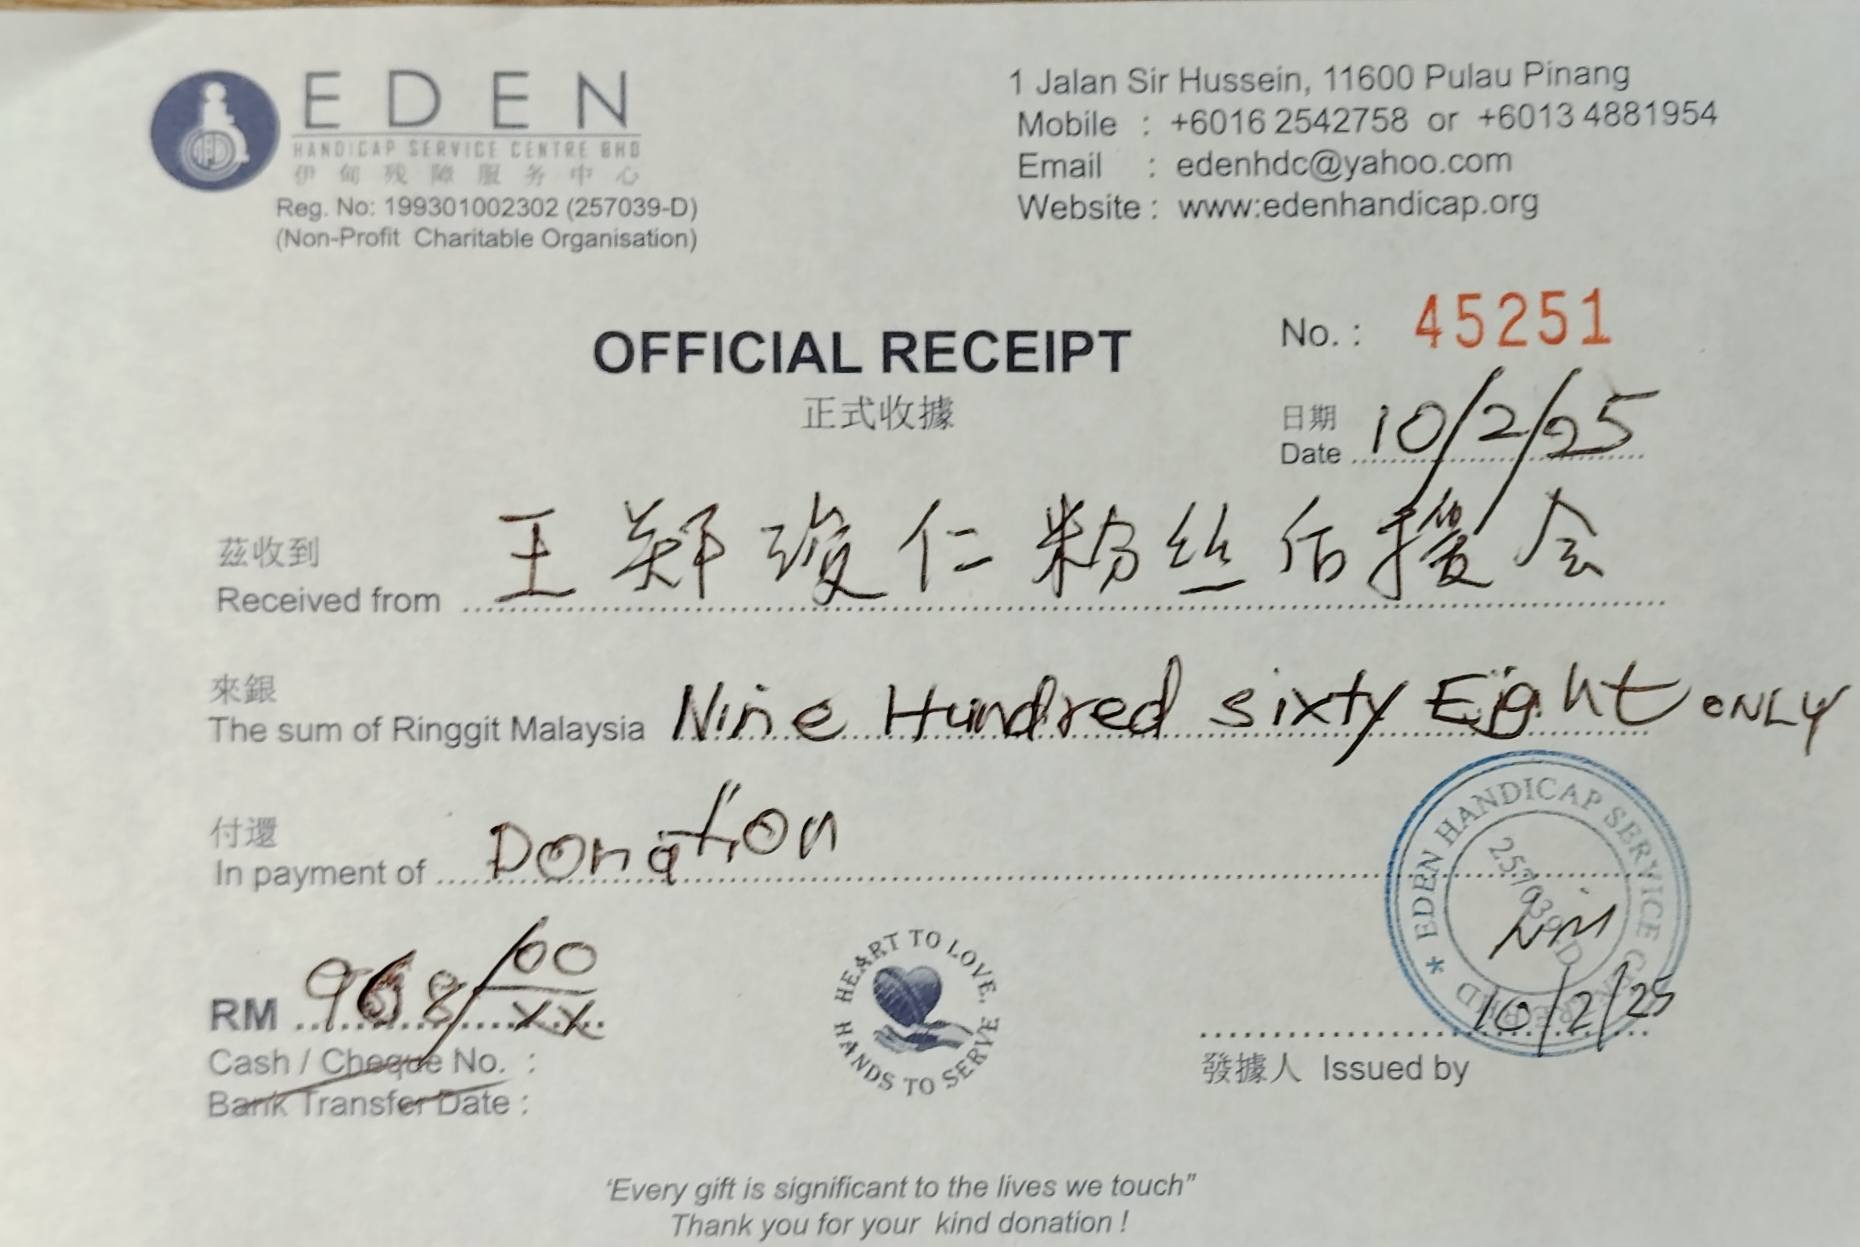 EDEN
HANDICAP SERVICE CENTRE BHD
伊甸残障服务中心
Reg. No: 199301002302 (257039-D)
(Non-Profit Charitable Organisation)
1 Jalan Sir Hussein, 11600 Pulau Pinang
Mobile : +6016 2542758 or +6013 4881954
Email : edenhdc@yahoo.com
Website : www:edenhandicap.org
OFFICIAL RECEIPT
正式收據
No. : 45251
日期
Date 10/2/25
茲收到
Received from 王郑琻仁粉丝后援会
來銀
The sum of Ringgit Malaysia Nine Hundred sixty Eight ONLY
付還
In payment of Donation
RM 968/00/xx
Cash / Cheque No. :
Bank Transfer Date :
HEART TO LOVE,
HANDS TO SERVE
EDEN HANDICAP SERVICE
257039-D
10/2/25
發據人 Issued by
'Every gift is significant to the lives we touch"
Thank you for your kind donation !